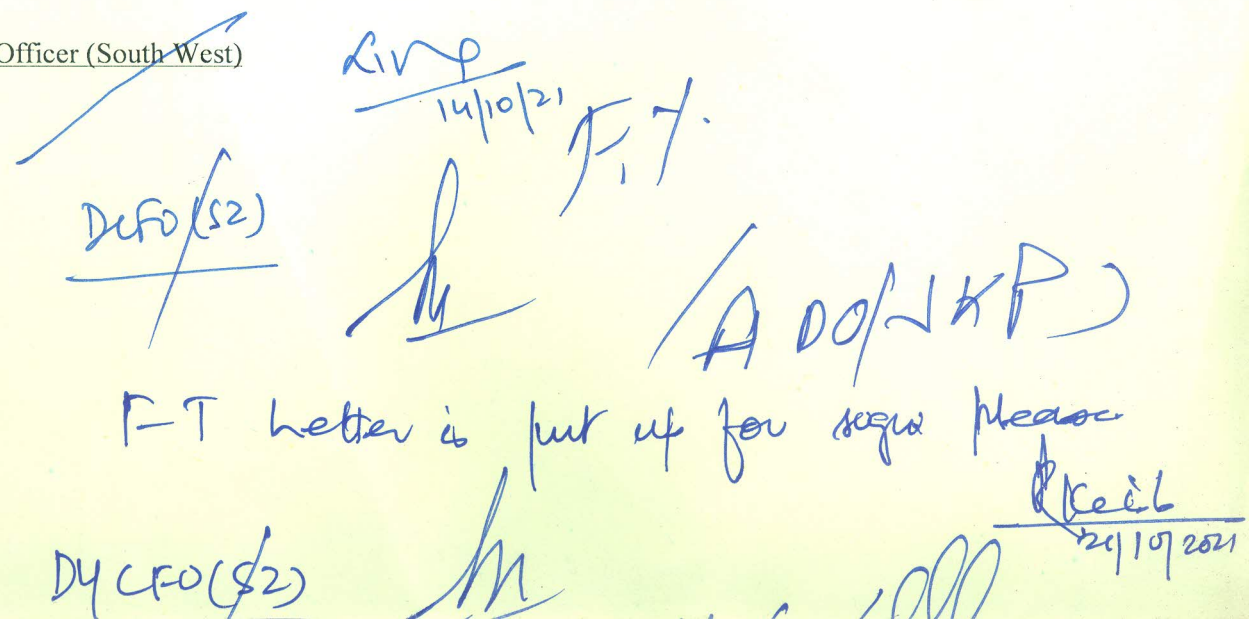 Officer (South West)
14/10/21
F.T.
DCFO (S2)
(ADO/JKP)
F-T Letter is put up for signa please
Dy CFO (S2)